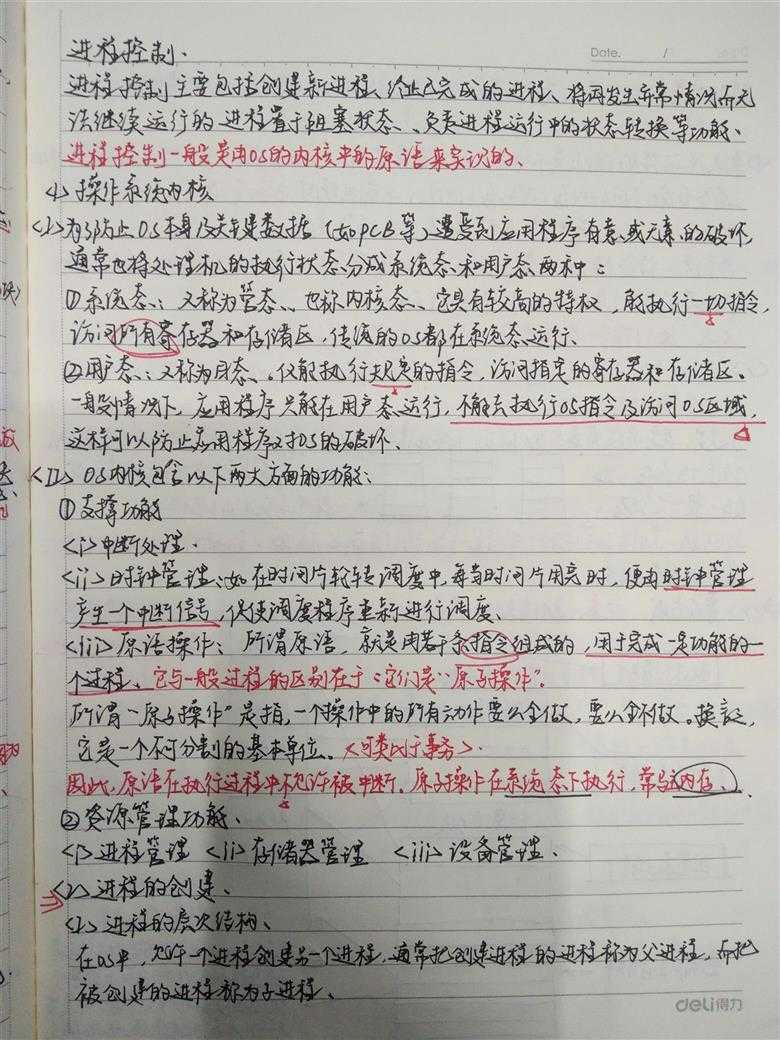 Date. /
进程控制.
进程控制主要包括创建新进程、终止已完成的进程、将因发生异常情况而无
法继续运行的进程置于阻塞状态、负责进程运行中的状态转换等功能、
进程控制一般是由OS的内核中的原语来实现的、
<1>操作系统内核
<I>为了防止OS本身及关键数据(如PCB等)遭受到应用程序有意或无意的破坏,
通常也将处理机的执行状态分成系统态和用户态两种:
①系统态:又称为管态、也称内核态、它具有较高的特权,能执行一切指令,
访问所有寄存器和存储区,传统的OS都在系统态运行、
②用户态:又称为目态、。仅能执行规定的指令,访问指定的寄存器和存储区。
一般情况下,应用程序只能在用户态运行,不能去执行OS指令及访问OS区域,
这样可以防止应用程序对OS的破坏、
<II>OS内核包含以下两大方面的功能:
①支撑功能
<i>中断处理.
<ii>时钟管理:如在时间片轮转调度中,每当时间片用完时,便由时钟管理
产生一个中断信号,促使调度程序重新进行调度、
<iii>原语操作:所谓原语,就是由若干条指令组成的,用于完成一定功能的一
个进程、它与一般过程的区别在于:它们是“原子操作”.
所谓“原子操作”是指,一个操作中的所有动作要么全做,要么全不做。换言之,
它是一个不可分割的基本单位。<可类比于事务>.
因此,原语在执行过程中不允许被中断。原子操作在系统态下执行,常驻内存、
②资源管理功能、
<i>进程管理 <ii>存储器管理 <iii>设备管理、
<2>进程的创建、
<I>进程的层次结构、
在OS中,允许一个进程创建另一个进程,通常把创建进程的进程称为父进程,而把
被创建的进程称为子进程、
deli得力